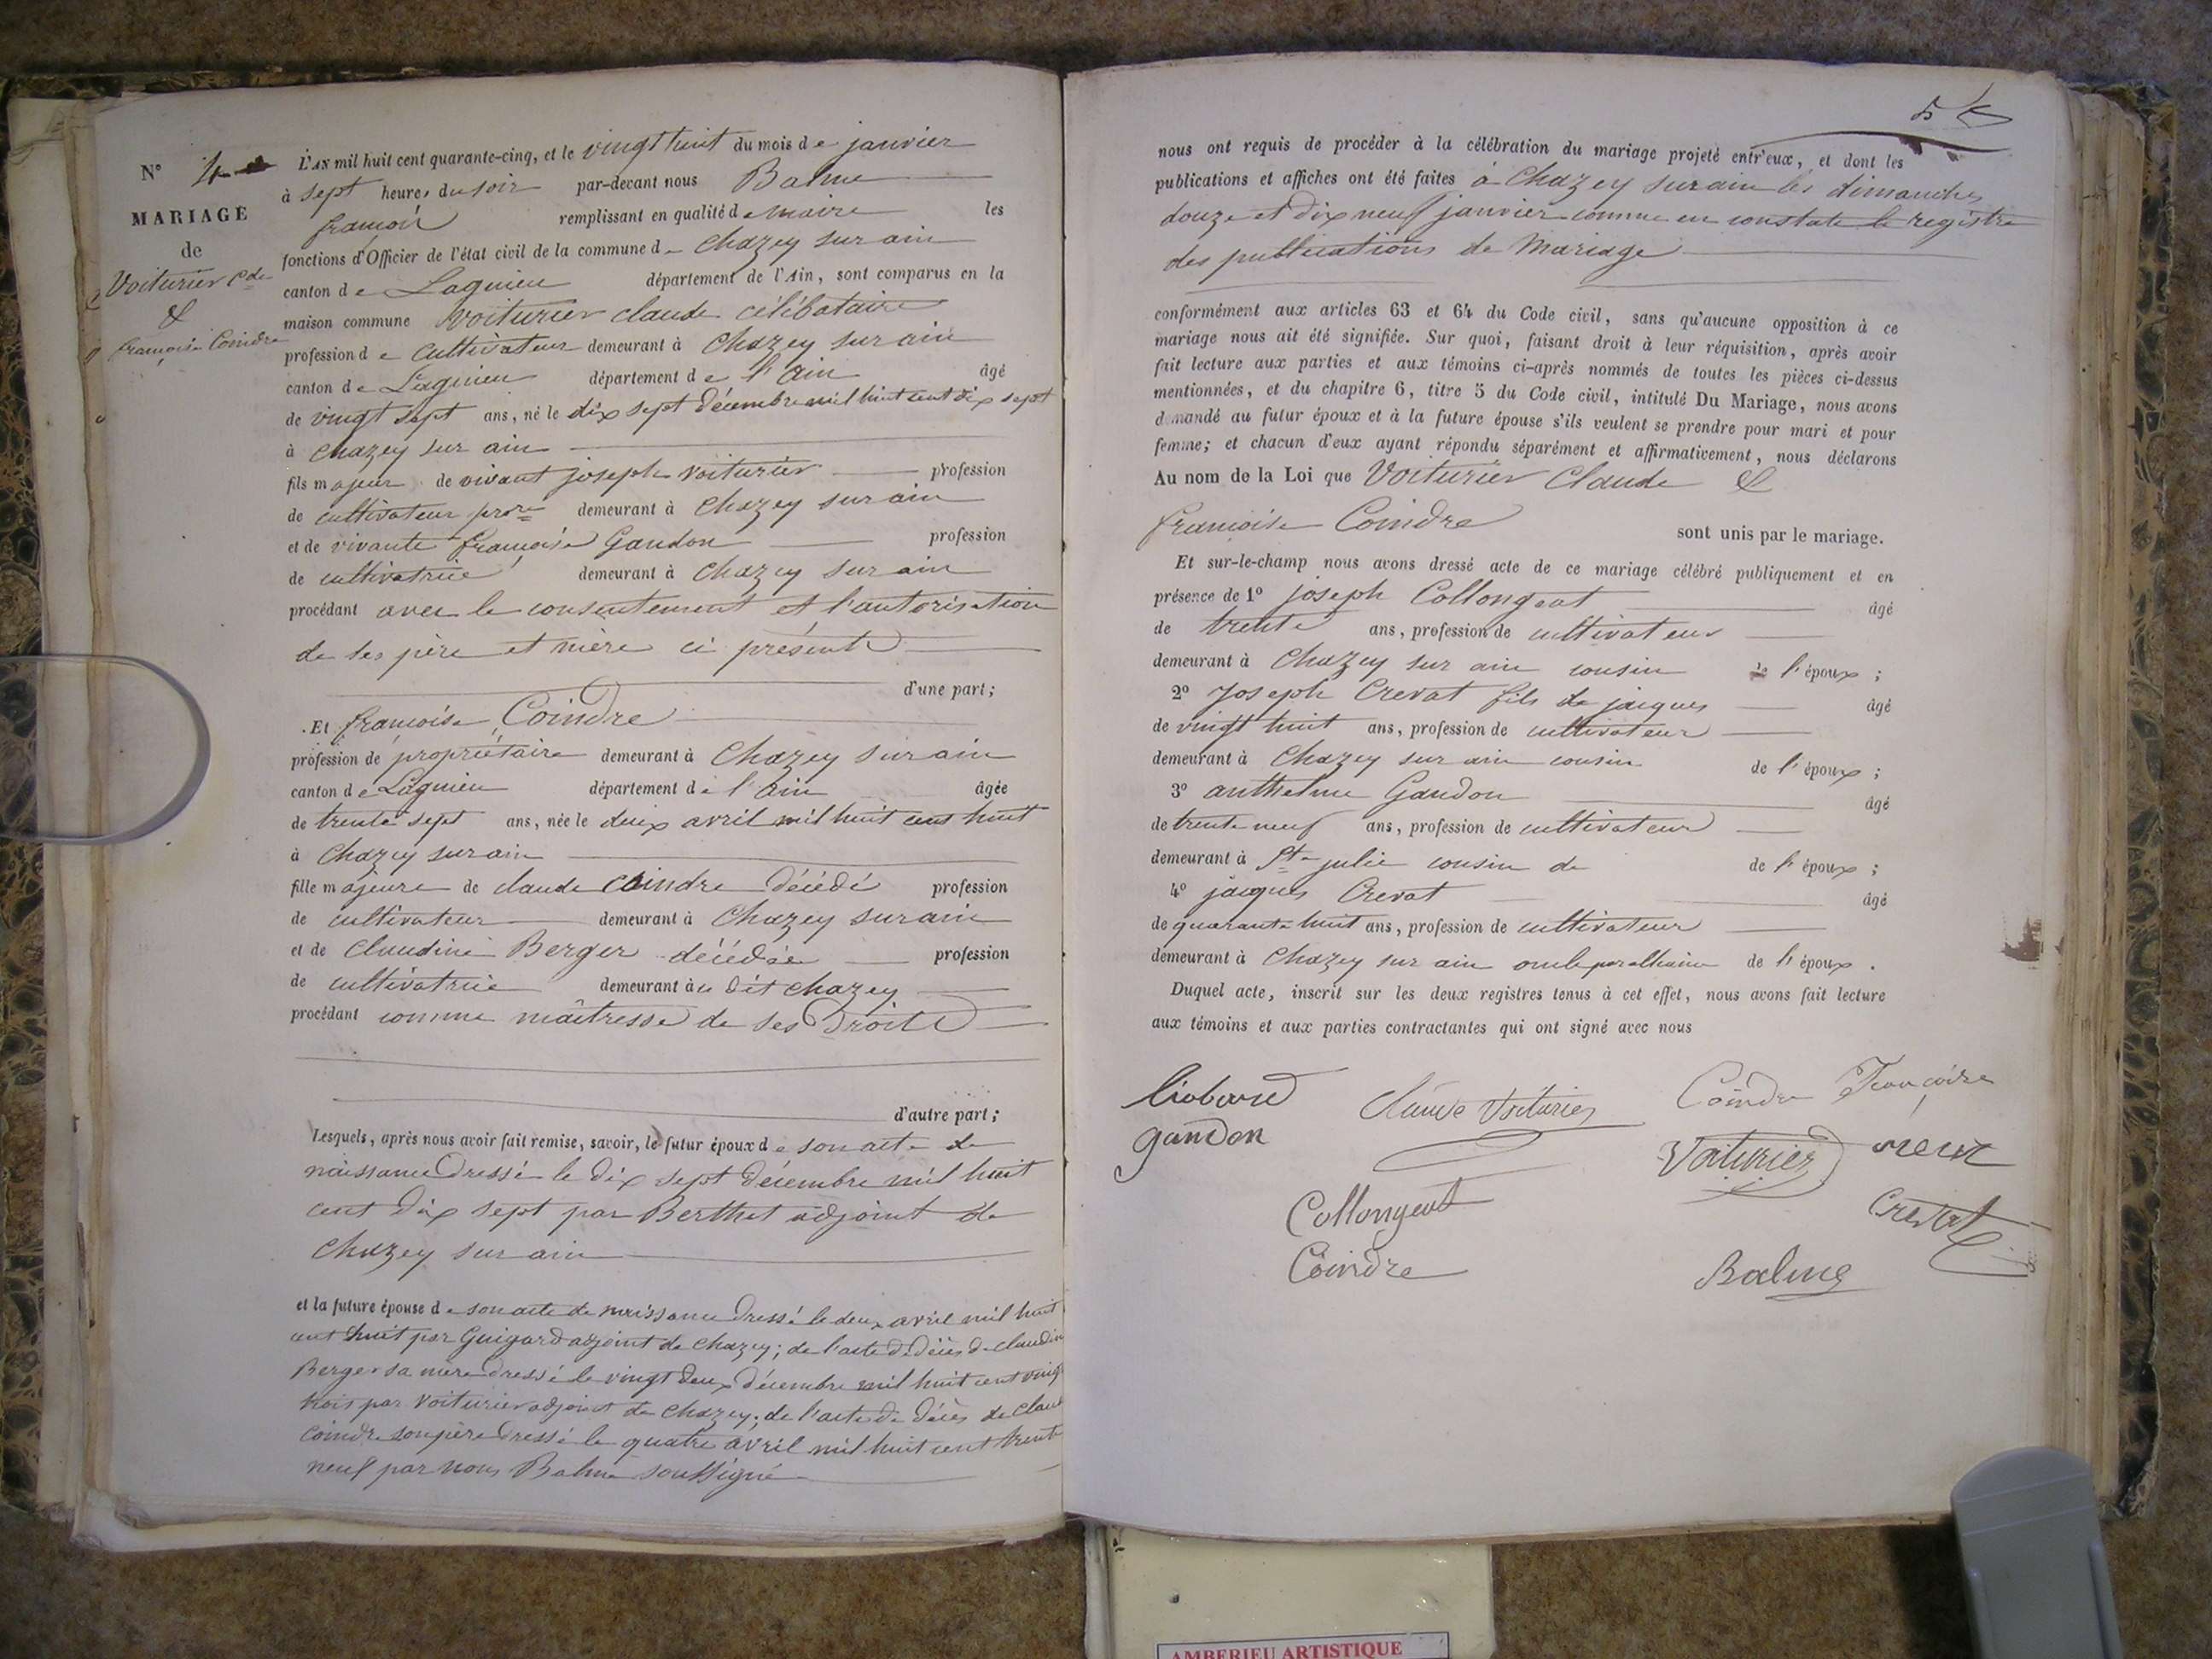 N° 4
MARIAGE
de
Voiturier Cde
&
françoise Coindre
L'AN mil huit cent quarante-cinq, et le vingt huit du mois de janvier
à sept heures du soir par-devant nous Balme
françois remplissant en qualité de maire les
fonctions d'Officier de l'état civil de la commune de Chazey sur ain
canton de Lagnieu département de l'Ain, sont comparus en la
maison commune Voiturier claude célibataire
profession de Cultivateur demeurant à Chazey sur ain
canton de Lagnieu département de l'ain âgé
de vingt sept ans, né le dix sept décembre mil huit cent dix sept
à chazey sur ain
fils majeur de vivant joseph voiturier profession
de cultivateur prore demeurant à Chazey sur ain
et de vivante françoise Gandon profession
de cultivatrice demeurant à Chazey sur ain
procédant avec le consentement et l'autorisation
de ses père et mère ci présents
d'une part;
Et françoise Coindre
profession de propriétaire demeurant à Chazey sur ain
canton de Lagnieu département de l'ain âgée
de trente sept ans, née le deux avril mil huit cent huit
à Chazey sur ain
fille majeure de claude coindre décédé profession
de cultivateur demeurant à Chazey sur ain
et de Claudine Berger décédée profession
de cultivatrice demeurant au dit chazey
procédant comme maîtresse de ses Droits
d'autre part;
Lesquels, après nous avoir fait remise, savoir, le futur époux de son acte de
naissance Dressé le dix sept décembre mil huit
cent dix sept par Berthet adjoint de
Chazey sur ain
et la future épouse de son acte de naissance Dressé le deux avril mil huit
cent huit par Guigard adjoint de Chazey; de l'acte de décès de claudine
Berger sa mère Dressé le vingt deux décembre mil huit cent vingt
trois par Voiturier adjoint de Chazey; de l'acte de décès de Claude
Coindre son père Dressé le quatre avril mil huit cent trente
neuf par nous Balme soussigné
5
nous ont requis de procéder à la célébration du mariage projeté entr'eux, et dont les
publications et affiches ont été faites à Chazey sur ain les dimanches
douze et dix neuf janvier comme en constate le registre
des publications de Mariage
conformément aux articles 63 et 64 du Code civil, sans qu'aucune opposition à ce
mariage nous ait été signifiée. Sur quoi, faisant droit à leur réquisition, après avoir
fait lecture aux parties et aux témoins ci-après nommés de toutes les pièces ci-dessus
mentionnées, et du chapitre 6, titre 5 du Code civil, intitulé Du Mariage, nous avons
demandé au futur époux et à la future épouse s'ils veulent se prendre pour mari et pour
femme; et chacun d'eux ayant répondu séparément et affirmativement, nous déclarons
Au nom de la Loi que Voiturier Claude &
françoise Coindre sont unis par le mariage.
Et sur-le-champ nous avons dressé acte de ce mariage célébré publiquement et en
présence de 1° joseph Collongeat âgé
de trente ans, profession de cultivateur
demeurant à Chazey sur ain cousin de l'époux;
2° Joseph Crevat fils de jacques âgé
de vingt huit ans, profession de cultivateur
demeurant à Chazey sur ain cousin de l'époux;
3° anthelme Gandon âgé
de trente neuf ans, profession de cultivateur
demeurant à Ste julie cousin de de l'époux;
4° jacques Crevat âgé
de quarante huit ans, profession de cultivateur
demeurant à Chazey sur ain oncle par alliance de l'époux.
Duquel acte, inscrit sur les deux registres tenus à cet effet, nous avons fait lecture
aux témoins et aux parties contractantes qui ont signé avec nous
Liobard Claude Voiturier Coindre Françoise
gandon Voiturier crevat
Collongeat Crevat
Coindre Balme
AMBERIEU ARTISTIQUE